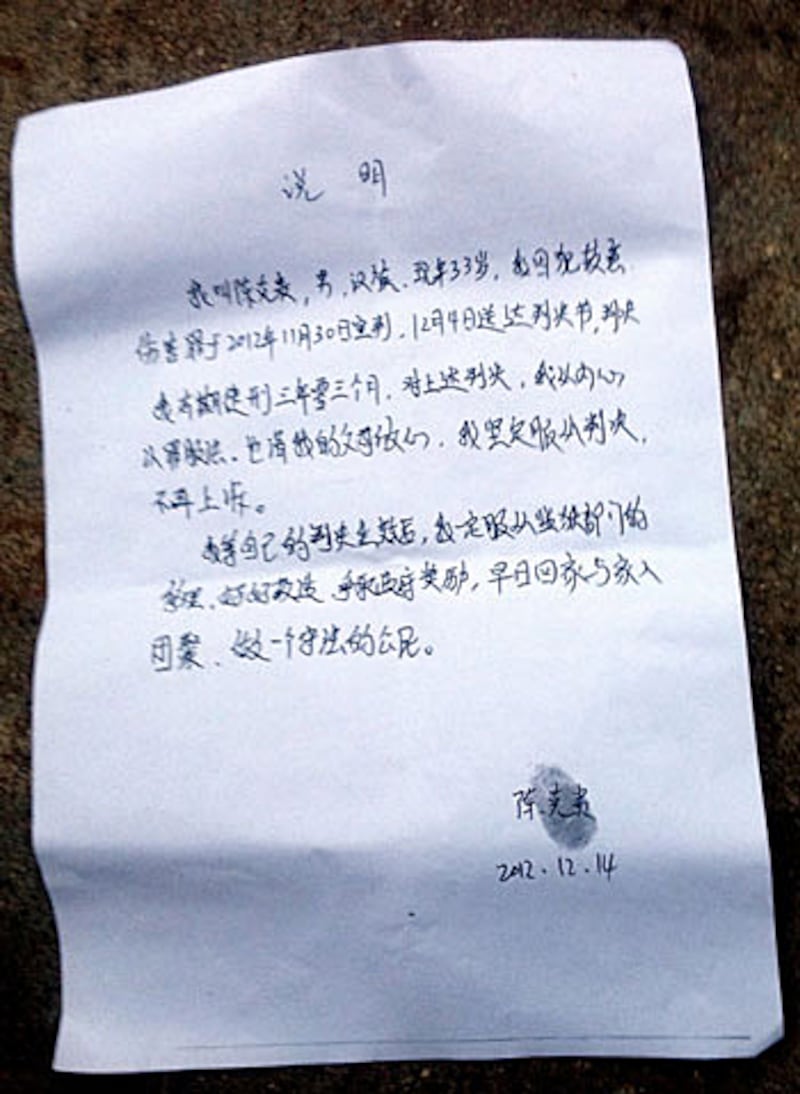 说 明
我叫陈克贵，男，汉族、现年33岁，我因犯故意
伤害罪于2012年11月30日宣判，12月4日送达判决书，判决
我有期徒刑三年零三个月，对上述判决，我从内心
认罪服法、也请我的父母放心，我坚定服从判决，
不再上诉。
我等自己的判决生效后，我一定服从监狱部门的
管理、好好改造、争取政府奖励，早日回家与家人
团聚、做一个守法的公民。
陈克贵
2012.12.14